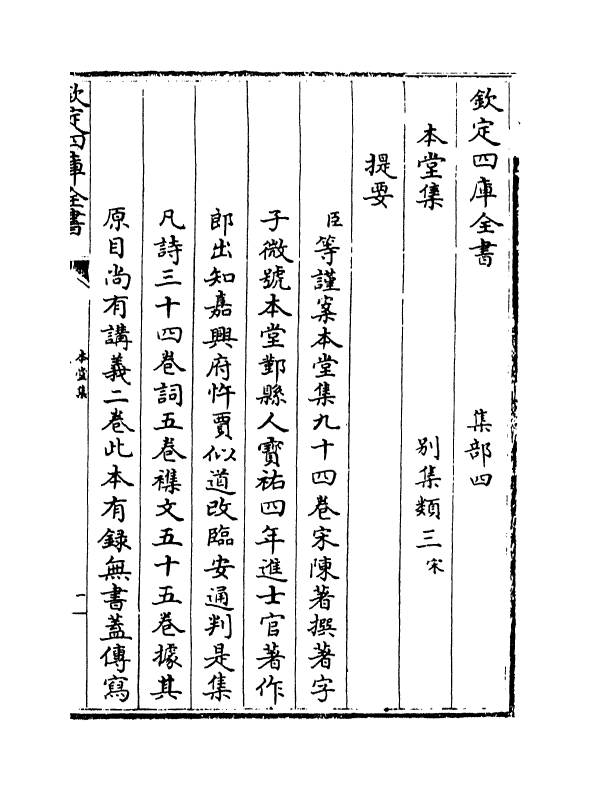 欽定四庫全書　集部四
本堂集　別集類三宋
提要
臣等謹案本堂集九十四卷宋陳著撰著字
子微號本堂鄞縣人寳祐四年進士官著作
郎出知嘉興府忤賈似道改臨安通判是集
凡詩三十四卷詞五卷襍文五十五卷據其
原目尚有講義二卷此本有録無書蓋傳寫
欽定四庫全書　本堂集　一